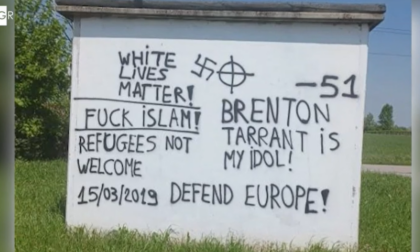 GR
WHITE
LIVES
MATTER!
FUCK ISLAM!
REFUGEES NOT
WELCOME
15/03/2019
-51
BRENTON
TARRANT IS
MY IDOL!
DEFEND EUROPE!